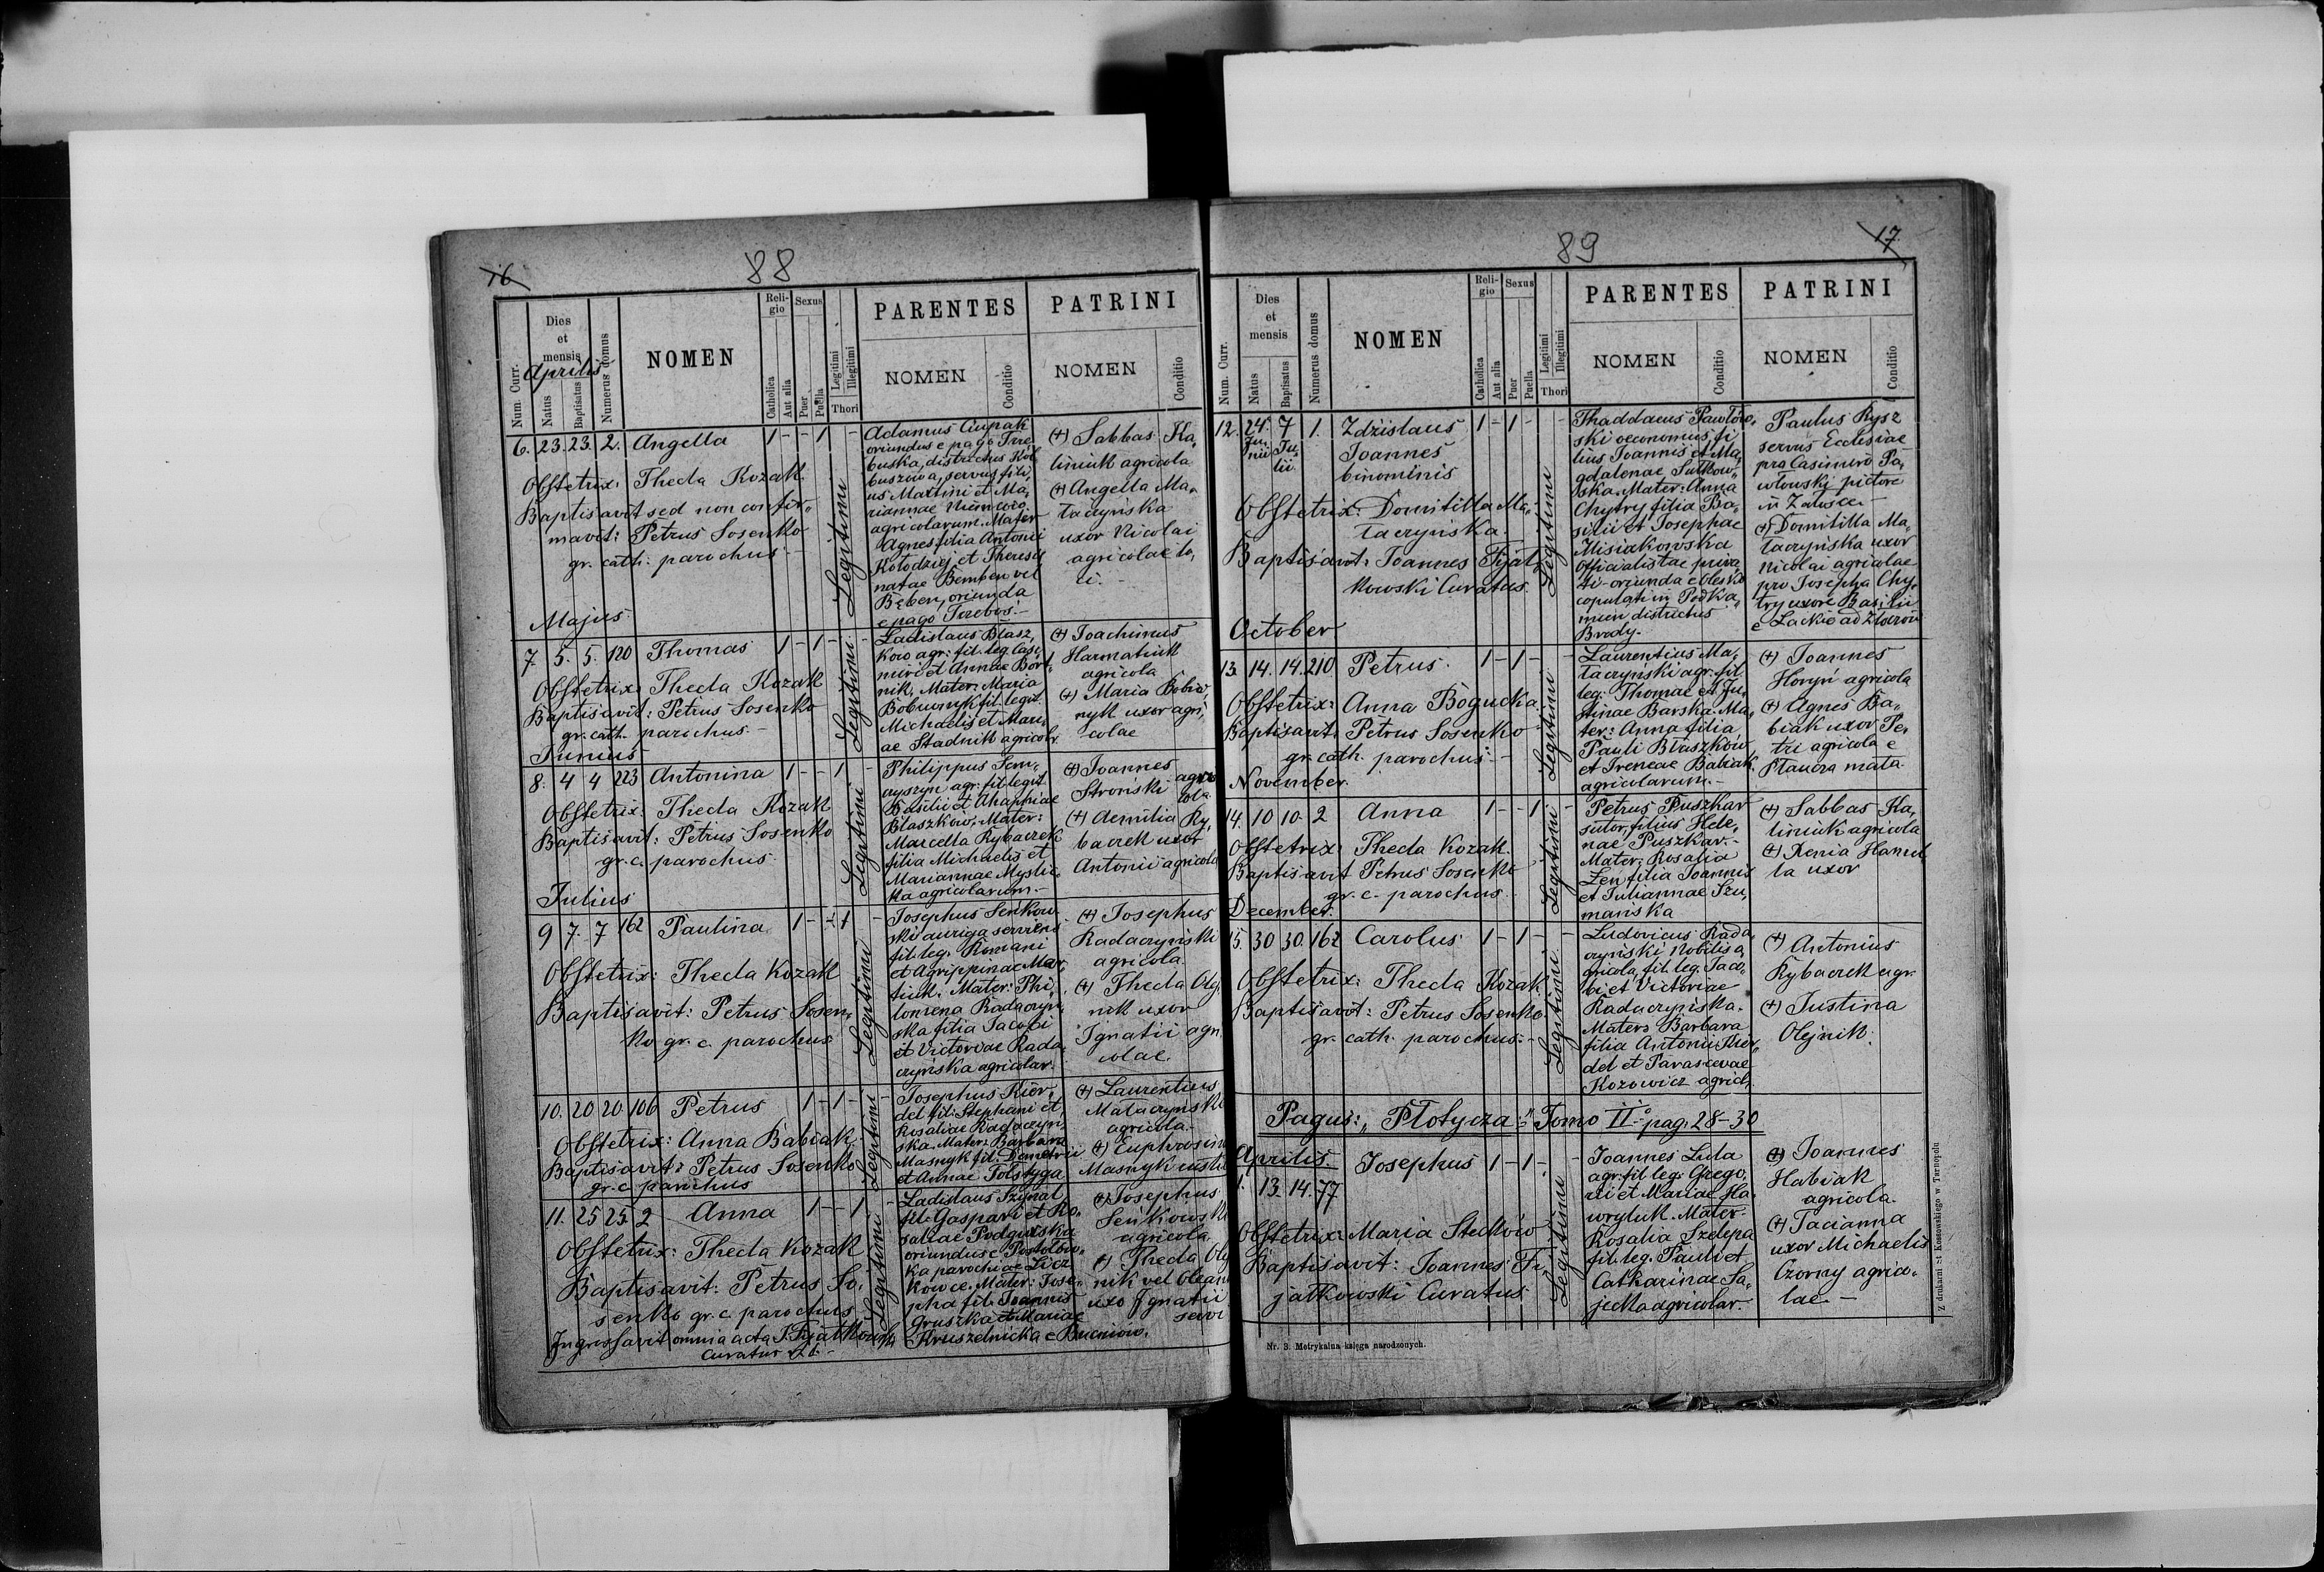 16
88
Num. Curr.
Dies
et
mensis
Aprilis
Natus
Baptisatus
Numerus domus
NOMEN
Reli-
gio
Catholica
Aut alia
Sexus
Puer
Puella
Legitimi
Illegitimi
Thori
PARENTES
NOMEN
Conditio
PATRINI
NOMEN
Conditio
6. 23. 23. 2. Angella 1 - - 1 -
Obstetrix: Thecla Kozak
Baptisavit sed non confir„
mavit: Petrus Sosenko
gr. cath. parochus.-
Legitimi
Adamus Ciupak
oriundus e pago Trze
buska, districtus Kol
buszowa, servus, fili,
us Martini et Ma,
riannae Niemiec
agricolarum. Mater
Agnes filia Antonii
Kołodziej et Theresa
natae Bemben vel
Bęben, oriunda
e pago Trzeboś.-
(+) Sabbas Ka,
liniuk agricola
(+) Angella Ma,
taczyńska
uxor Nicolai
agricolae lo,
ci.-
Majus
7 5. 5. 120 Thomas 1 - 1 - -
Obstetrix: Thecla Kozak
Baptisavit: Petrus Sosenko
gr. cath. parochus.-
Legitimi
Ladislaus Błasz,
ków agr: fil. leg. Casi,
miri et Annae Bort,
nik. Mater: Maria
Michaelis et Mari,
ae Stadnik agricolr.
(+) Joachimus
Harmatiuk
agricola
(+) Maria Bobro
nyk uxor agri,
colae
Junius
8. 4 4 223 Antonina 1 - - 1 -
Obstetrix: Thecla Kozak
Baptisavit: Petrus Sosenko
gr. c. parochus.
Legitimi
Philippus Sem,
czyszyn agr. fil. legit
Basilii et Ahaphiae
Błaszków, Mater:
Marcella Rybaczek
filia Michaelis et
Mariannae Myslic,
ka agricolarum.-
(+) Joannes
Stroński agri
cola
(+) Aemilia Ry,
baczek uxor
Antonii agricola
Julius
9 7. 7 162 Paulina 1 - - 1 -
Obstetrix: Thecla Kozak
Baptisavit: Petrus Sosen,
ko gr. c. parochus.
Legitimi
Josephus Seńkow
ski auriga serviens
fil. leg. Romani
et Agrippinae Mar,
tiuk. Mater: Phi,
lomena Radaczyń,
ska filia Jacobi
et Victoriae Rada
czyńska agricolar.
(+) Josephus
Radaczyński
agricola.
(+) Thecla Olij,
nik uxor
Ignatii agri,
colae.
10. 20 20 106 Petrus 1 - 1 - -
Obstetrix: Anna Babiak
Baptisavit: Petrus Sosenko
gr. c. parochus
Legitimi
Josephus Kior,
del fil. Stephani et
Rosaliae Radaczyń,
ska. Mater: Barbara
Masnyk fil. Demetrii
et Annae Tołstyga
(+) Laurentius
Mataczyński
agricola.-
(+) Euphrosin
11. 25 25. 2 Anna 1 - - 1 -
Obstetrix: Thecla Kozak
Baptisavit: Petrus So,
senko gr. c. parochus
Legitimi
Ladislaus Szynal
fil. Gaspari et Ro,
saliae Podgurska
oriundus e Postołów,
ka parochiae Licz
kowce. Mater: Jose,
pha fil. Joannis
Gruszka et Mariae
Kruszelnicka e Bucniow.
(+) Josephus
Seńkowski
agricola.
(+) Thecla Oly
nik vel Olean
uxo Ignatii
servi
Ingrossavit omnia acta J. Fijałkowski
Curatus
89
17
Num. Curr.
Dies
et
mensis
Natus
Baptisatus
Numerus domus
NOMEN
Reli-
gio
Catholica
Aut alia
Sexus
Puer
Puella
Legitimi
Illegitimi
Thori
PARENTES
NOMEN
Conditio
PATRINI
NOMEN
Conditio
12. 24. 7 1. Zdzislaus 1 - 1 - -
Ju Ju
nii lii.
Joannes
binominis
Obstetrix: Domitilla Ma,
taczyńska
Baptisavit: Joannes Fijał
kowski Curatus.
Legitimi
Thaddaeus Pawłow,
ski oeconomus, fi
lius Joannis et Ma,
gdalenae Sutkow„
ska. Mater: Anna
Chytry filia Ba,
silii et Josephae
Misiakowska
officialistae priva
ti - oriunda e Olesko
copulati in Podka,
mien districtus
Brody.-
Paulus Rysz
servus Ecclesiae
pro Casimiro Pa,
włowski pictore
in Załoźce.-
(+) Domitilla Ma,
taczyńska uxor
Nicolai agricolae
pro Josepha Chy,
try uxore Basilii
e Lackie ad Złoczów
October
13. 14. 14. 210 Petrus. 1 - 1 - -
Obstetrix: Anna Bogucka
Baptisavit: Petrus Sosenko
gr. cath. parochus.-
Legitimi
Laurentius Ma,
taczyński agr. fil
leg. Thomae et Ju,
stinae Barska. Ma,
ter: Anna filia
Pauli Błaszków
et Ireneae Babiak
agricolarum.-
(+) Joannes
Horyń agricola
(+) Agnes Ba,
biak uxor Pe,
tri agricola e
Płaucza mała.
November.
14. 10 10. 2 Anna 1 - - 1 -
Obstetrix: Thecla Kozak.
Baptisavit Petrus Sosenko
gr. c. parochus.
Legitimi
Petrus Puszkar
sutor, filius Hele,
nae Puszkar.-
Mater: Rosalia
Zen filia Joannis
et Juliannae Szu,
mańska
(+) Sabbas Ka,
liniuk agricola
(+) Xenia Hamul
la uxor
December.
15. 30 30. 162 Carolus 1 - 1 - -
Obstetrix: Thecla Kozak
Baptisavit: Petrus Sosenko.
gr. cath. parochus.-
Legitimi
Ludovicus Rada
czyński nobilis a,
gricola, fil. leg. Jaco,
bi et Victoriae
Radaczyńska.
Mater: Barbara
filia Antonii Kior,
del et Parascevae
Kozowicz agricol.
(+) Antonius
Rybaczek agr.
(+) Justina
Olejnik.
Pagus: „Płotycza" Tomo II° pag. 28-30
Aprilis.
1. 13. 14. 77 Josephus 1 - 1 - -
Obstetrix: Maria Steckow
Baptisavit: Joannes Fi,
jałkowski Curatus.
Legitimi
Joannes Luła
agr. fil. leg. Grego,
rii et Mariae Ha,
wryluk. Mater.
Rosalia Szelepa
fil. leg. Pauli et
Catharinae Sa,
jecka agricolar.
(+) Joannes
Habiak
agricola.
(+) Tacianna
uxor Michaelis
Czorny agrico,
lae.-
Nr. 3. Metrykalna księga narodzonych.
Z drukarni st Kossowskiego w Tarnopolu